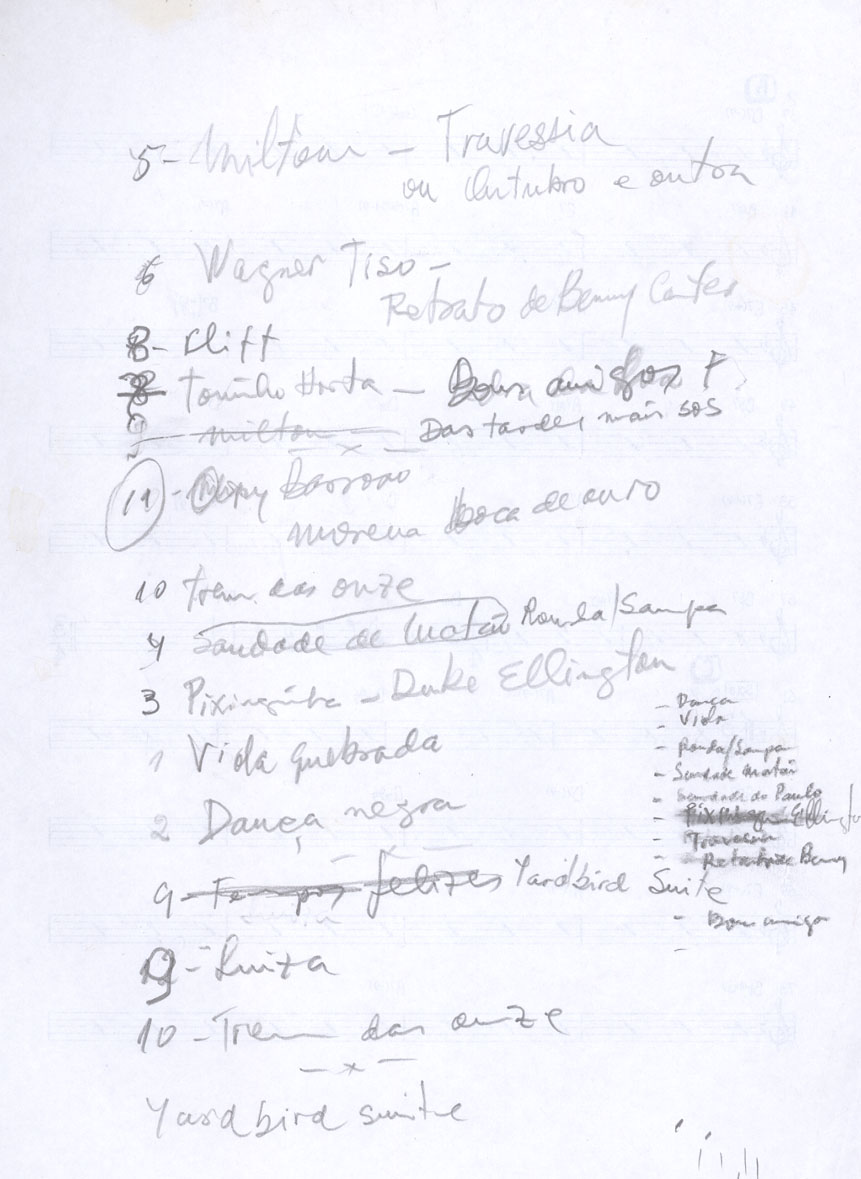 5- Milton - Travessia
ou Outubro e outra
6 Wagner Tiso -
Retrato de Benny Carter
8- Cliff
8 Toninho Horta - Bons amigos F
9 - Milton - Das tardes mais sós
- x -
11 - Ary Barroso
Morena boca de ouro
10 Trem das onze
4 Saudade de Matão Ronda/Sampa
3 Pixinguinha - Duke Ellington
1 Vida quebrada
2 Dança negra
- x -
9 - Tempos felizes Yardbird Suite
9 - Luiza
10 - Trem das onze
- x -
Yardbird suite
- Dança
- Vida
- Ronda/Sampa
- Saudade Matão
- Saudade de Paulo
- Pixinguinha Ellington
- Travessia
- Retrato de Benny
- Bons amigos
-